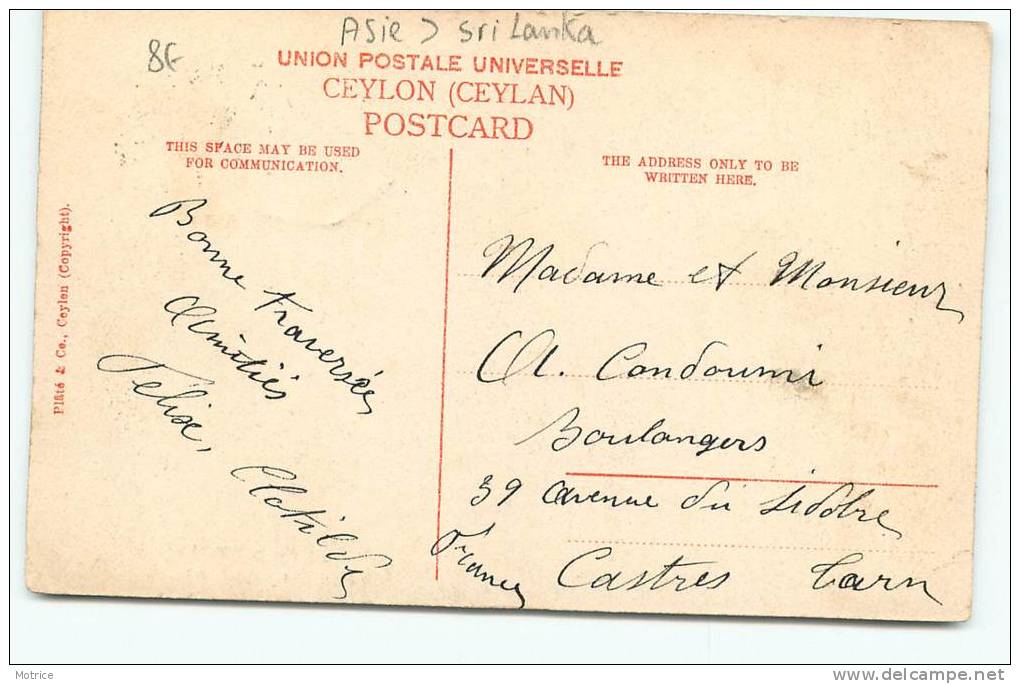 Asie > Sri Lanka
8€
UNION POSTALE UNIVERSELLE
CEYLON (CEYLAN)
POSTCARD
THIS SPACE MAY BE USED
FOR COMMUNICATION.
THE ADDRESS ONLY TO BE
WRITTEN HERE.
Plâté & Co., Ceylon (Copyright).
Bonne traversée,
Amitiés
Félix, Clotilde
Madame et Monsieur
A. Condoumi
Boulangers
39 avenue du Sidobre
Castres Tarn
France
Motrice
www.delcampe.net